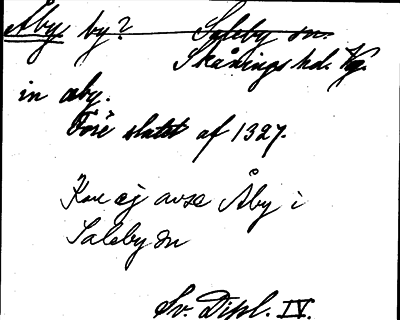 Åby. by? Saleby sn.
Skånings hd. Vg.
in æby.
Före slutet af 1327.
Kan ej avse Åby i
Saleby sn
Sv. Dipl. IV.